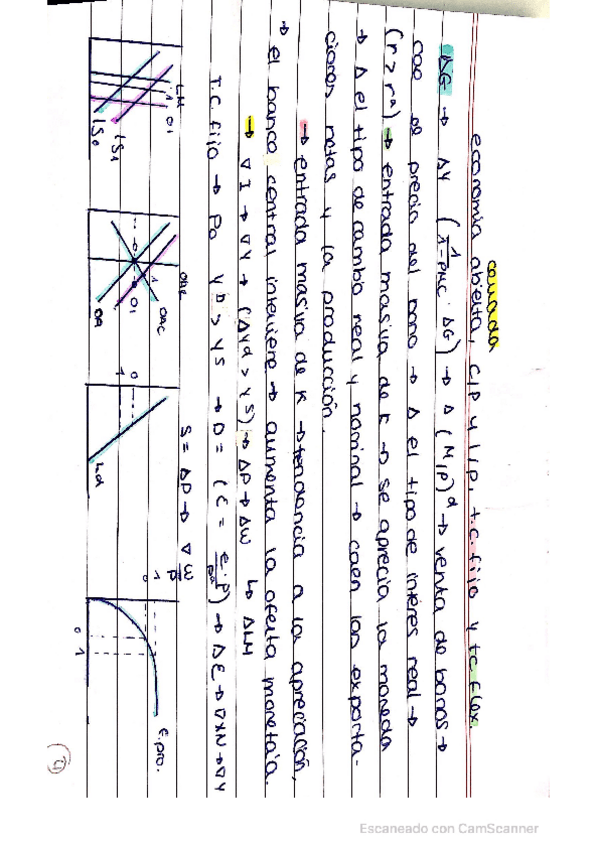 cerrada
economía abierta, c/p y l/p t.c. fijo y t.c flex.
ΔG → ΔY (1/1-PMC · ΔG) → Δ (M/P)ᵈ → venta de bonos →
cae el precio del bono → Δ el tipo de interés real →
(r > rᵃ) → entrada masiva de K → se aprecia la moneda
→ Δ el tipo de cambio real y nominal → caen las exporta-
ciones netas y la producción.
→ entrada masiva de K → tendencia a la apreciación,
→ el banco central interviene → aumenta la oferta moneta'a.
→ ∇I → ∇Y → (ΔYd > YS) → ΔP → ΔW ↳ ΔLM
T.C. fijo → P0 YD > YS → D = (ε = e·P/Pª) → Δε → ∇XN → ∇Y
S = ΔP → ∇ W/P
LM
0'1
1
IS1
IS0
OAL
OAC
1
0'1
OA
0
1
Ld
0
1
F. pro.
0
1
4
Escaneado con CamScanner